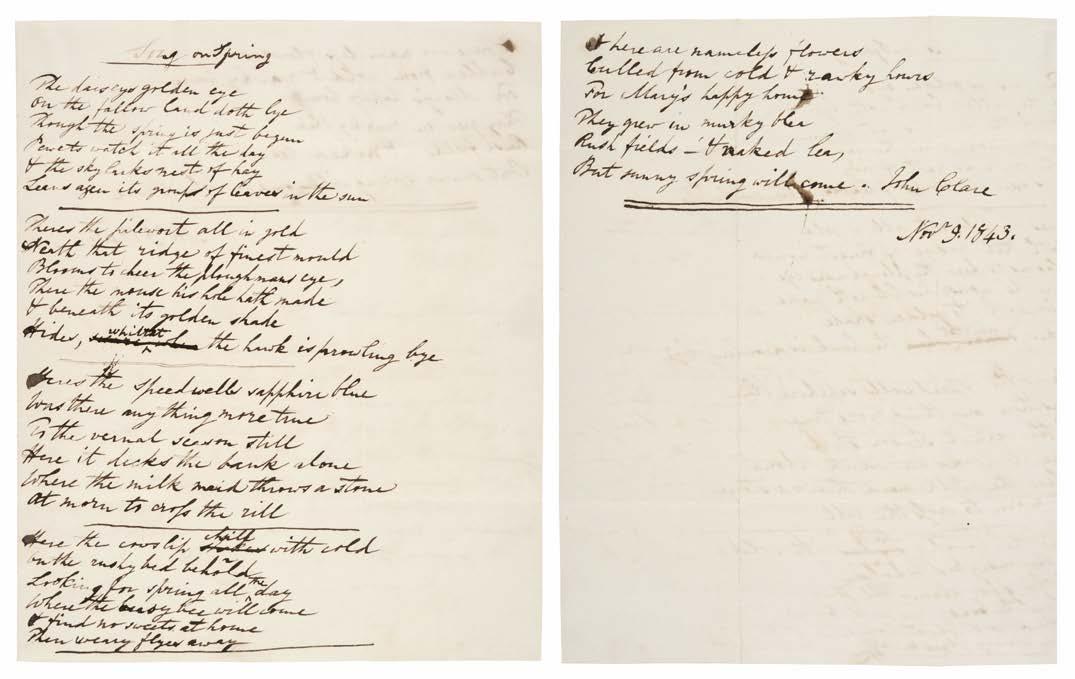 Song on Spring
The daiseys golden eye
On the fallow land doth lye
Though the spring is just begun
Pewets watch it all the day
& the skylarks nest of hay
Lears agen its groups of leaves in the sun
Theres the pilewort all in gold
Neath that ridge of finest mould
Blooms to cheer the ploughmans eye,
There the mouse his hole hath made
& beneath its golden shade
Hides, whilst the hawk is prowling bye
Heres the speedwells sapphire blue
Was there anything more true
To the vernal season still
Here it decks the bank alone
Where the milk maid throws a stone
At morn to cross the rill
Here the cowslip chill with cold
On the rushy bed behold
Looking for spring all the day
Where the busy bee will come
& find no sweets at home
Then weary flyes away
Here are nameless flowers
Culled from cold & rawky hours
For Mary's happy home
They grew in murky blea
Rush fields – & naked lea,
But sunny spring will come . John Clare
Novr 9. 1843.